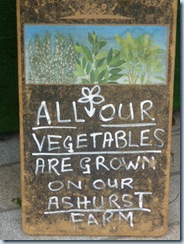 ALL OUR
VEGETABLES
ARE GROWN
ON OUR
ASHURST
FARM